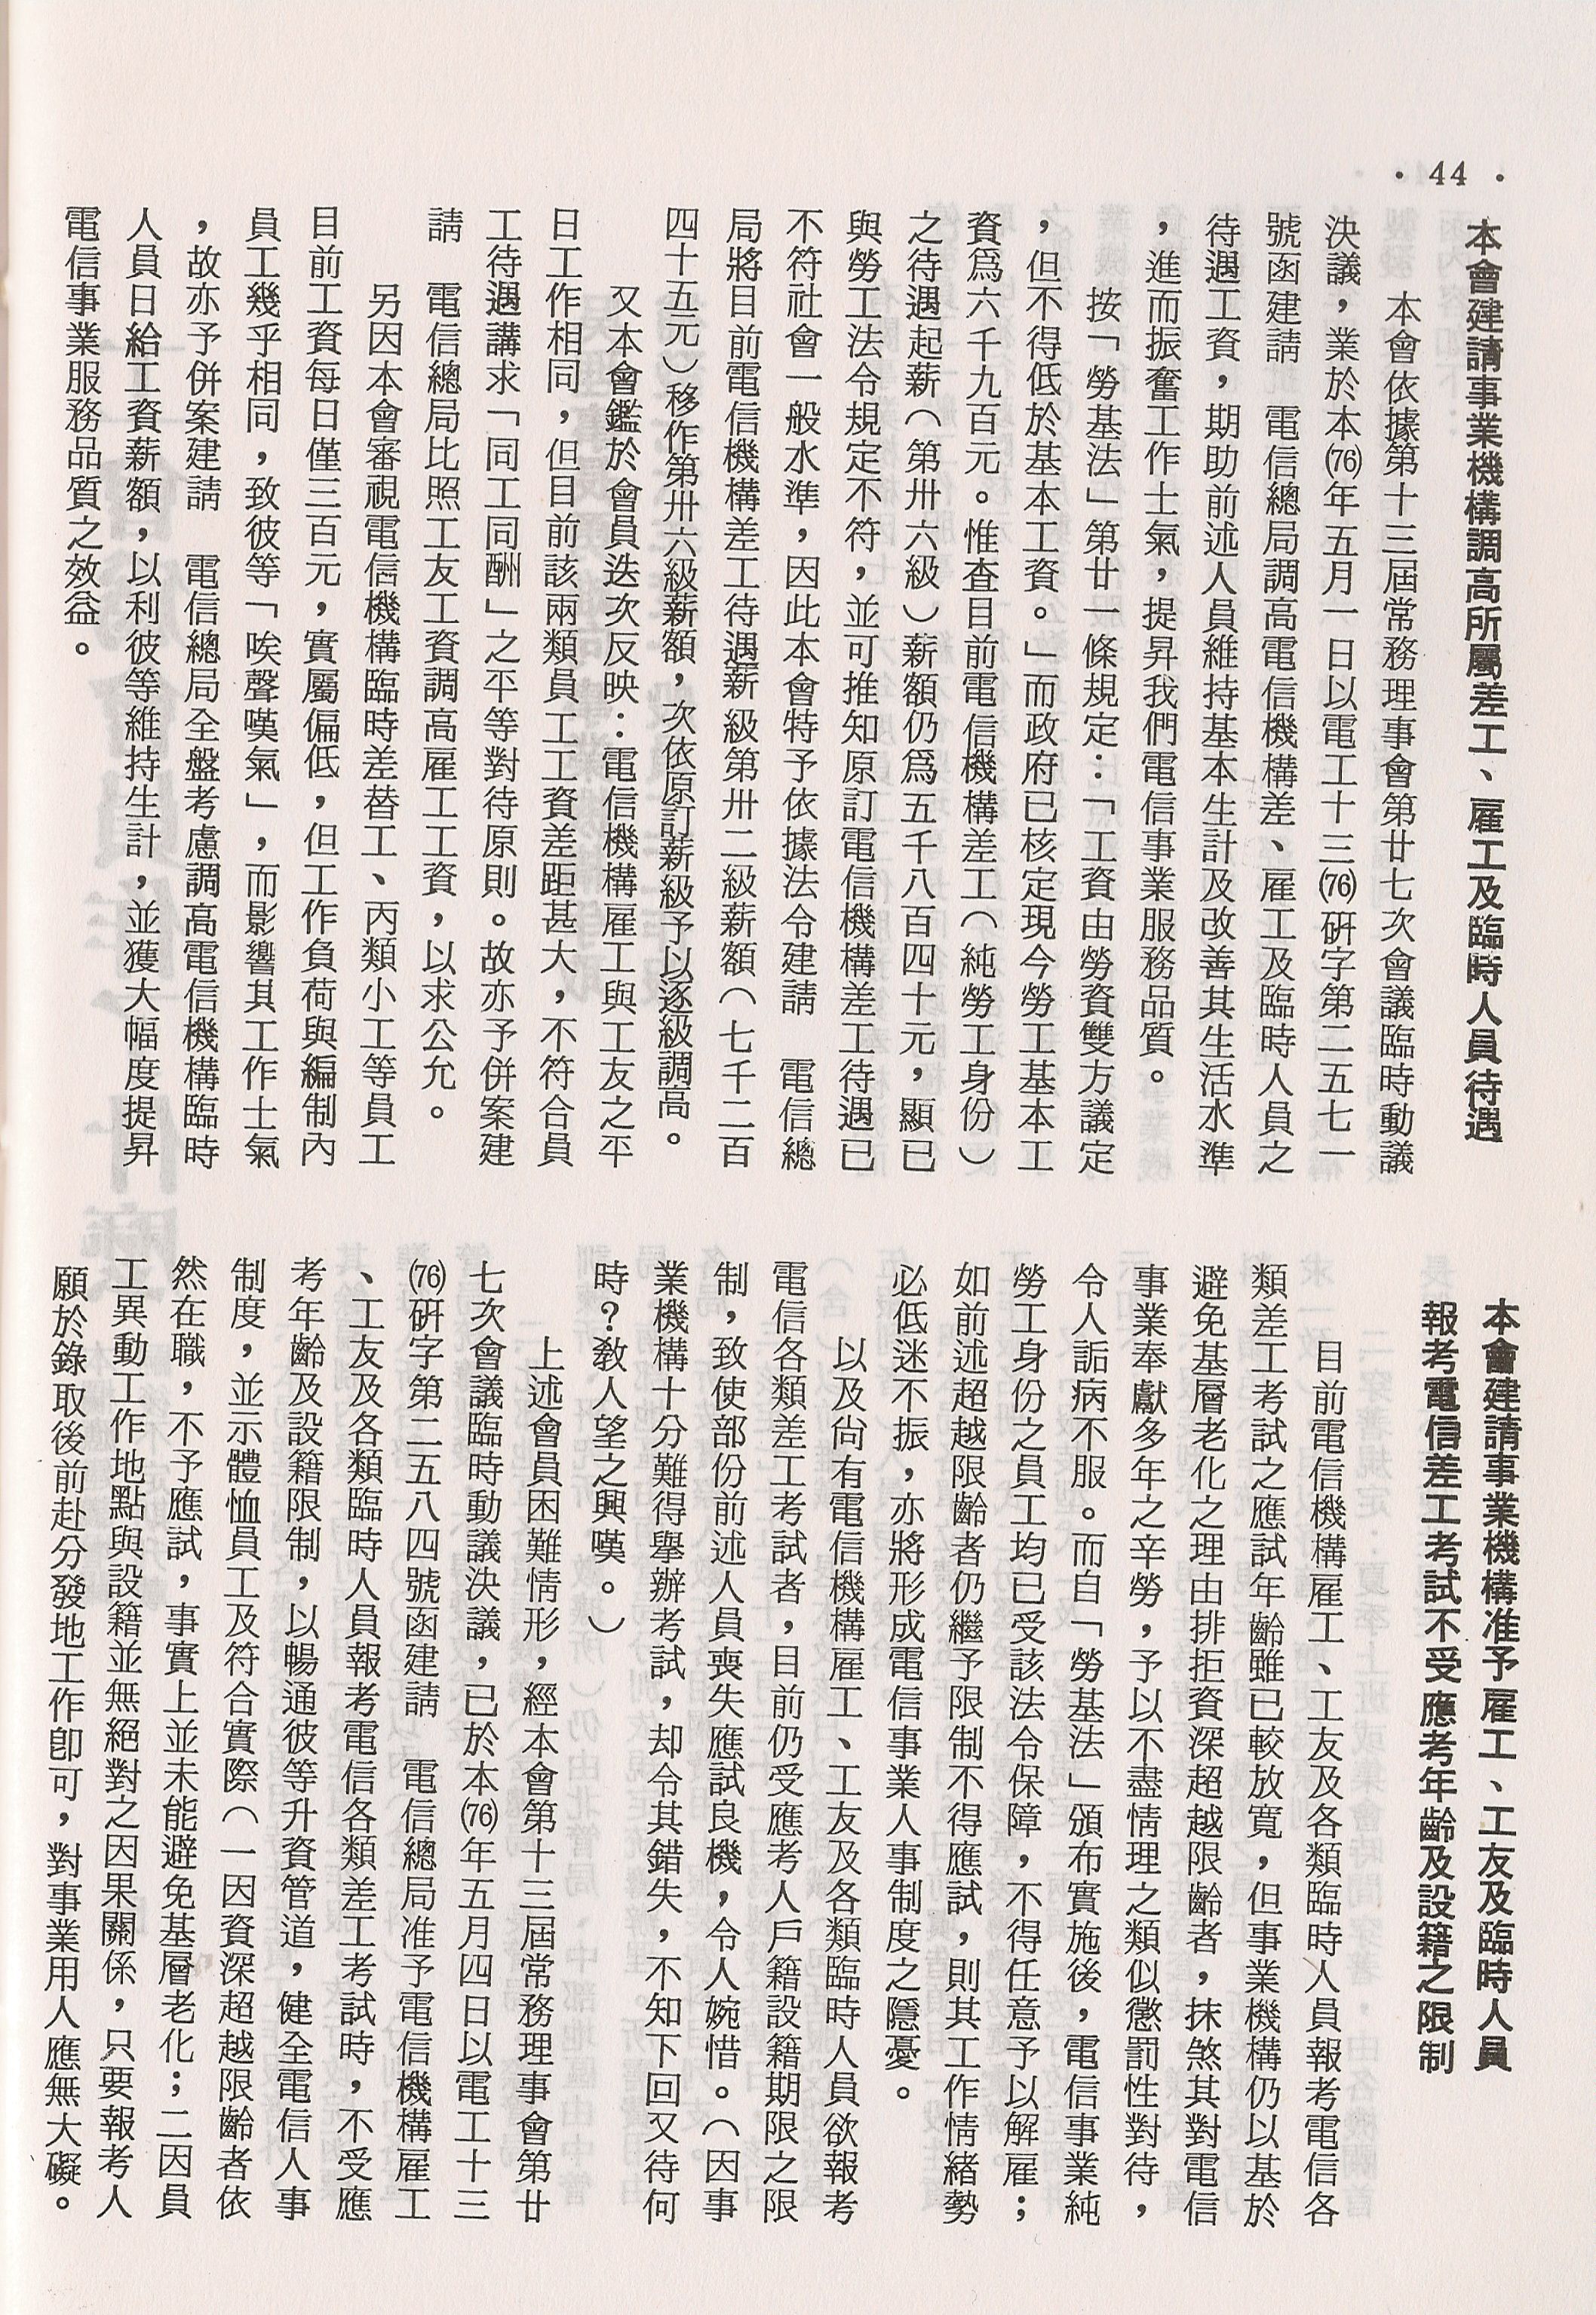 ·44·
本會建請事業機構調高所屬差工、雇工及臨時人員待遇
本會依據第十三屆常務理事會第廿七次會議臨時動議
決議，業於本(76)年五月一日以電工十三(76)研字第二五七一
號函建請　電信總局調高電信機構差、雇工及臨時人員之
待遇工資，期助前述人員維持基本生計及改善其生活水準
，進而振奮工作士氣，提昇我們電信事業服務品質。
按「勞基法」第廿一條規定：「工資由勞資雙方議定
，但不得低於基本工資。」而政府已核定現今勞工基本工
資爲六千九百元。惟查目前電信機構差工（純勞工身份）
之待遇起薪（第卅六級）薪額仍爲五千八百四十元，顯已
與勞工法令規定不符，並可推知原訂電信機構差工待遇已
不符社會一般水準，因此本會特予依據法令建請　電信總
局將目前電信機構差工待遇薪級第卅二級薪額（七千二百
四十五元）移作第卅六級薪額，次依原訂薪級予以逐級調高。
又本會鑑於會員迭次反映：電信機構雇工與工友之平
日工作相同，但目前該兩類員工工資差距甚大，不符合員
工待遇講求「同工同酬」之平等對待原則。故亦予併案建
請　電信總局比照工友工資調高雇工工資，以求公允。
另因本會審視電信機構臨時差替工、丙類小工等員工
目前工資每日僅三百元，實屬偏低，但工作負荷與編制內
員工幾乎相同，致彼等「唉聲嘆氣」，而影響其工作士氣
，故亦予併案建請　電信總局全盤考慮調高電信機構臨時
人員日給工資薪額，以利彼等維持生計，並獲大幅度提昇
電信事業服務品質之效益。
本會建請事業機構准予雇工、工友及臨時人員
報考電信差工考試不受應考年齡及設籍之限制
目前電信機構雇工、工友及各類臨時人員報考電信各
類差工考試之應試年齡雖已較放寬，但事業機構仍以基於
避免基層老化之理由排拒資深超越限齡者，抹煞其對電信
事業奉獻多年之辛勞，予以不盡情理之類似懲罰性對待，
令人詬病不服。而自「勞基法」頒布實施後，電信事業純
勞工身份之員工均已受該法令保障，不得任意予以解雇；
如前述超越限齡者仍繼予限制不得應試，則其工作情緒勢
必低迷不振，亦將形成電信事業人事制度之隱憂。
以及尙有電信機構雇工、工友及各類臨時人員欲報考
電信各類差工考試者，目前仍受應考人戶籍設籍期限之限
制，致使部份前述人員喪失應試良機，令人婉惜。（因事
業機構十分難得舉辦考試，却令其錯失，不知下回又待何
時？敎人望之興嘆。）
上述會員困難情形，經本會第十三屆常務理事會第廿
七次會議臨時動議決議，已於本(76)年五月四日以電工十三
(76)研字第二五八四號函建請　電信總局准予電信機構雇工
、工友及各類臨時人員報考電信各類差工考試時，不受應
考年齡及設籍限制，以暢通彼等升資管道，健全電信人事
制度，並示體恤員工及符合實際（一因資深超越限齡者依
然在職，不予應試，事實上並未能避免基層老化；二因員
工異動工作地點與設籍並無絕對之因果關係，只要報考人
願於錄取後前赴分發地工作卽可，對事業用人應無大礙。